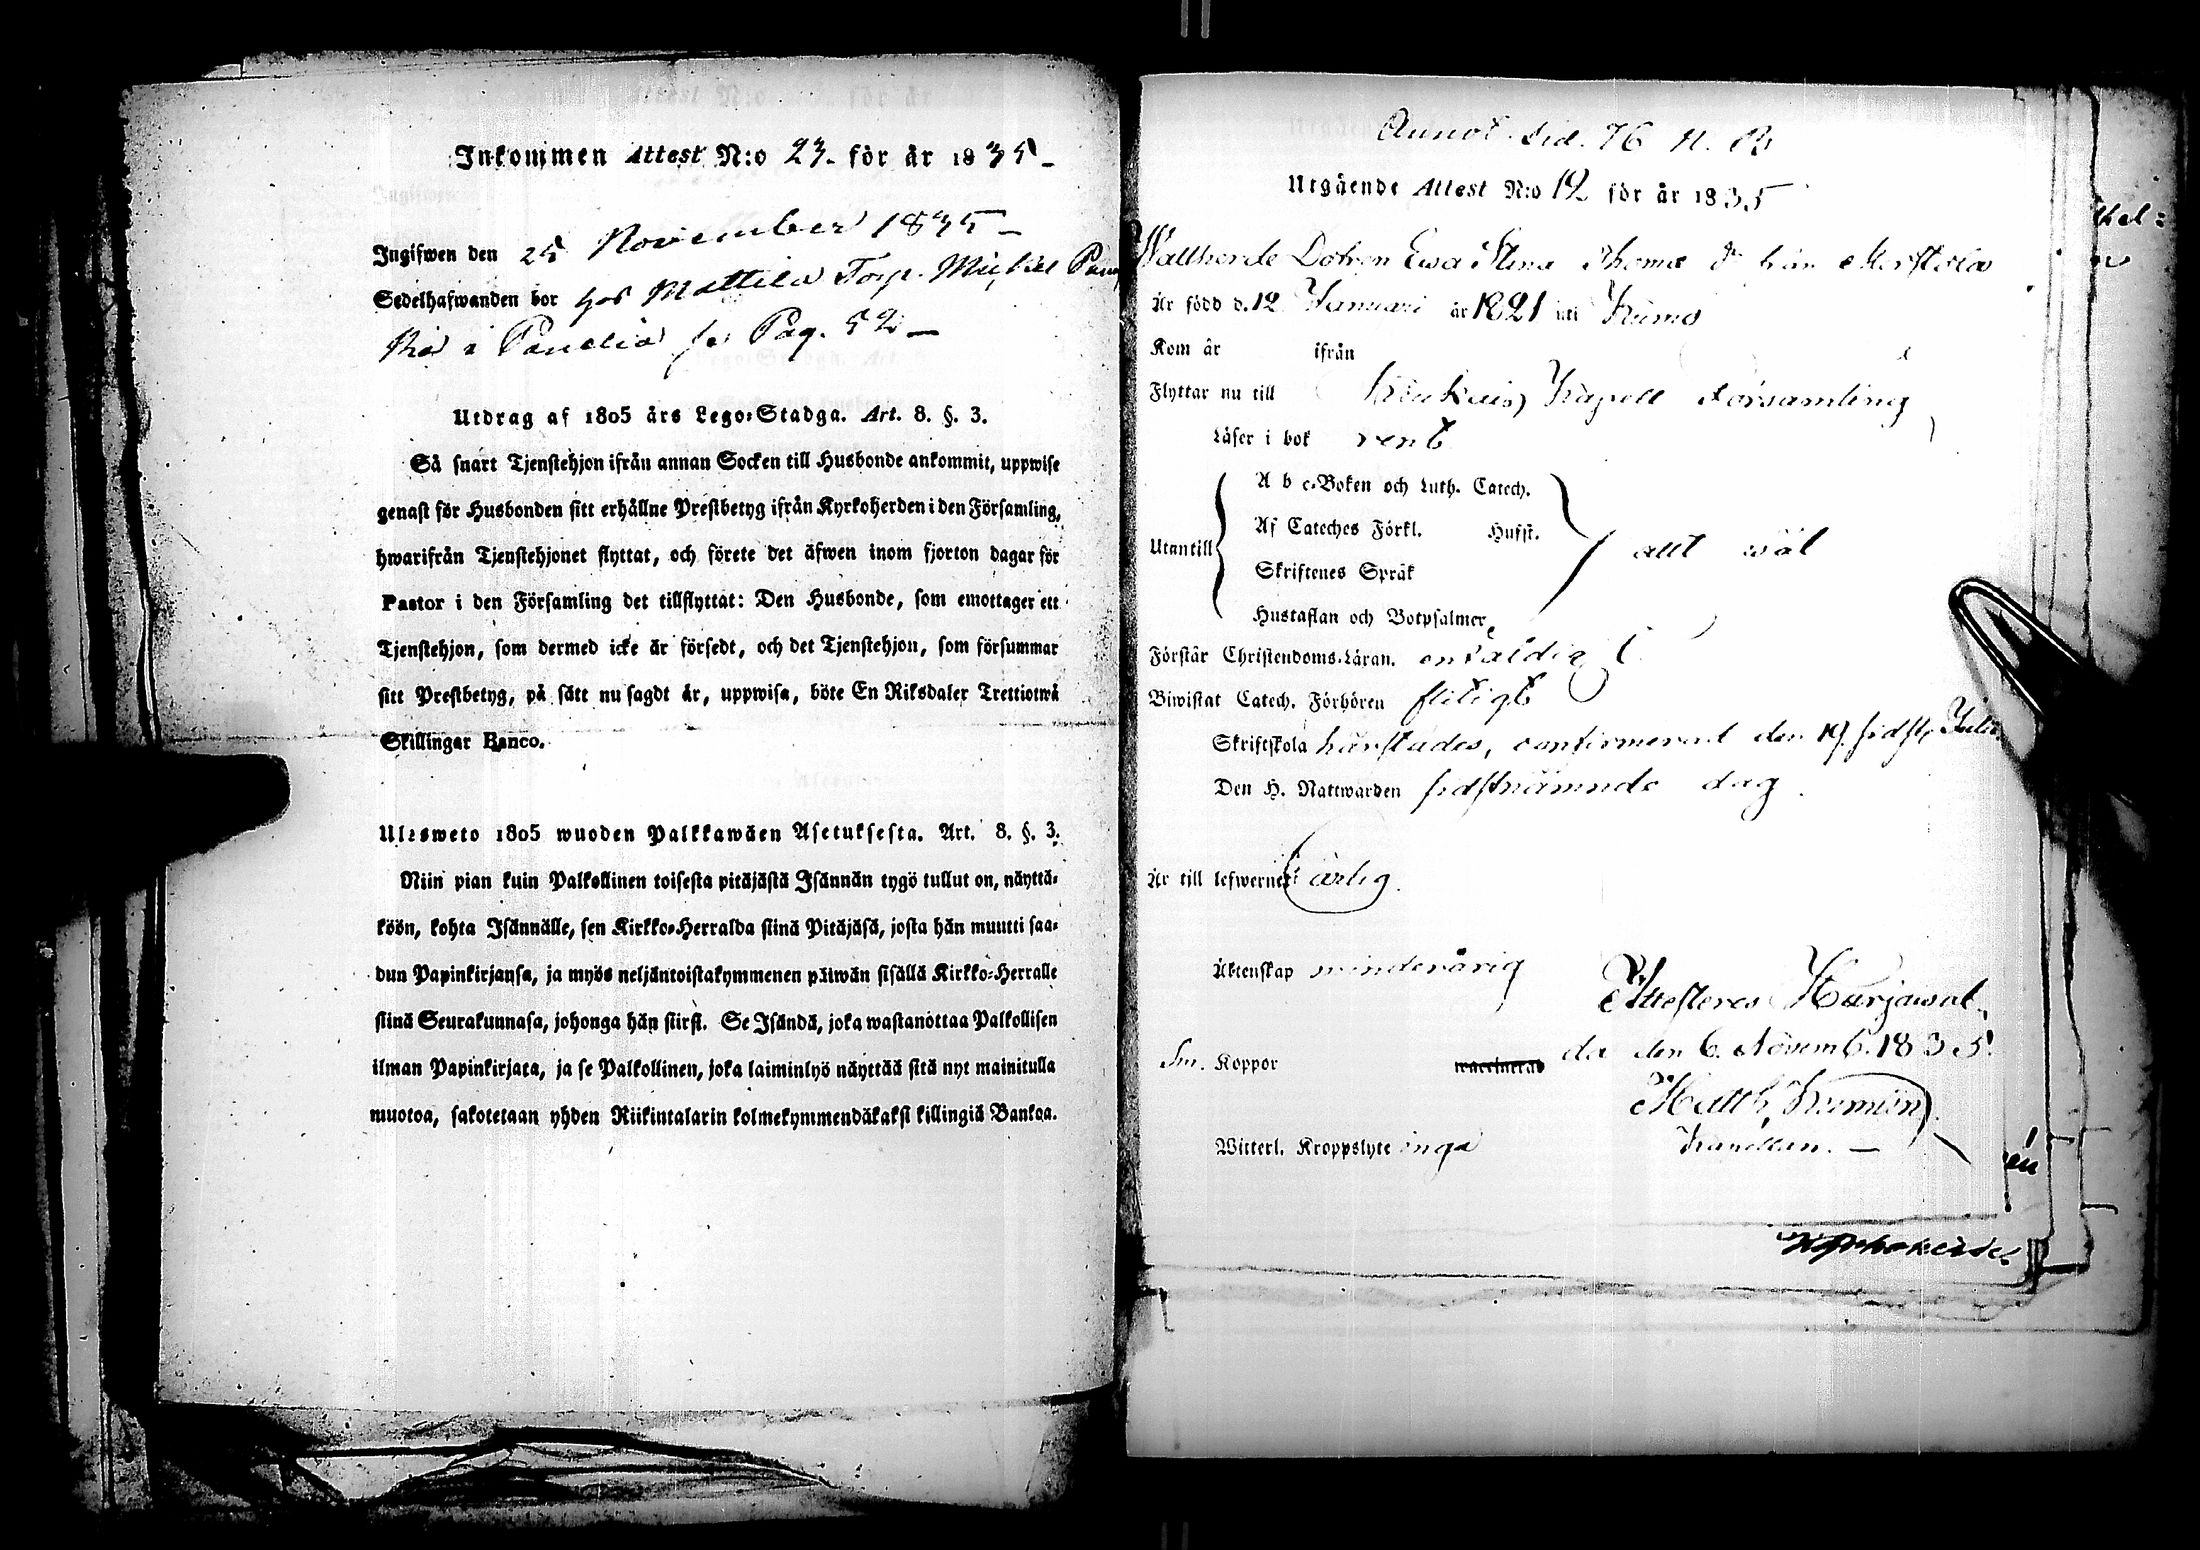 Inkommen Attest N:o 23. för år 1835
Ingifwen den 25 November 1835
Sedelhafwanden bor hos Mattila Torp.
i Panelia Pag. 52
Utdrag af 1805 års Lego-Stadga. Art. 8. §. 3.
Så snart Tjenstehjon ifrån annan Socken till Husbonde ankommit, uppwise
genast för Husbonden sitt erhållne Prestbetyg ifrån Kyrkoherden i den Församling,
hwarifrån Tjenstehjonet flyttat, och förete det äfwen inom fjorton dagar för
Pastor i den Församling det tillflyttat: Den Husbonde, som emottager ett
Tjenstehjon, som dermed icke är försedt, och det Tjenstehjon, som försummar
sitt Prestbetyg, på sätt nu sagdt är, uppwisa, böte En Riksdaler Trettiotwå
Skillingar Banco.
Ulosweto 1805 wuoden Palkkawäen Asetuksesta. Art. 8. §. 3.
Niin pian kuin Palkollinen toisesta pitäjästä Isännän tygö tullut on, näyttä-
köön, kohta Isännälle, sen Kirkko-Herralda siinä Pitäjäsä, josta hän muutti saa-
dun Papinkirjansa, ja myös neljäntoistakymmenen päiwän sisällä Kirkko-Herralle
siinä Seurakunnasa, johonga hän siirsi. Se Isändä, joka wastanottaa Palkollisen
ilman Papinkirjata, ja se Palkollinen, joka laiminlyö näyttää sitä nyt mainitulla
muotoa, sakotetaan yhden Riikintalarin kolmekymmendäkaksi killingiä Bankoa.
Annot. Sid. 76 N.
Utgående Attest N:o 12 för år 1835
Wallhorde Dottren Ewa Stina Thomæ Dr från
Är född d. 12 Januari år 1821 uti Kumo
Kom år ifrån
Flyttar nu till Kapell Församling
Läser i bok rent
A b c-Boken och Luth. Catech.
Af Cateches Förkl. Husst.
Utantill allt wäl
Skriftenes Språk
Hustaflan och Botpsalmer
Förstår Christendoms-Läran. enfaldigt
Biwistat Catech. Förhören flitigt
Skriftskola härstädes, confirmerad den 19 sidstl. Julii
Den H. Nattwarden sidstnämnde dag.
Är till lefwernet ärlig.
Äktenskap minderårig
Attesteres Harjawal-
da den 6. Novemb. 1835.
Sm. Koppor
Matth.
Witterl. Kroppslyte inga